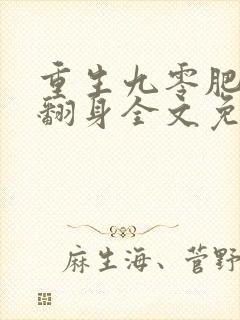 重生九零肥
翻身全文免
麻生海、菅野